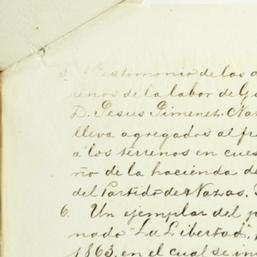 5. Testimonio de los
renos de la labor de
D. Jesus Jimenez.
lleva agregados al
á los terrenos en
ño de la hacienda de
del Partido de Nazas.
6. Un ejemplar del
nado "La Libertad",
1863, en el cual se